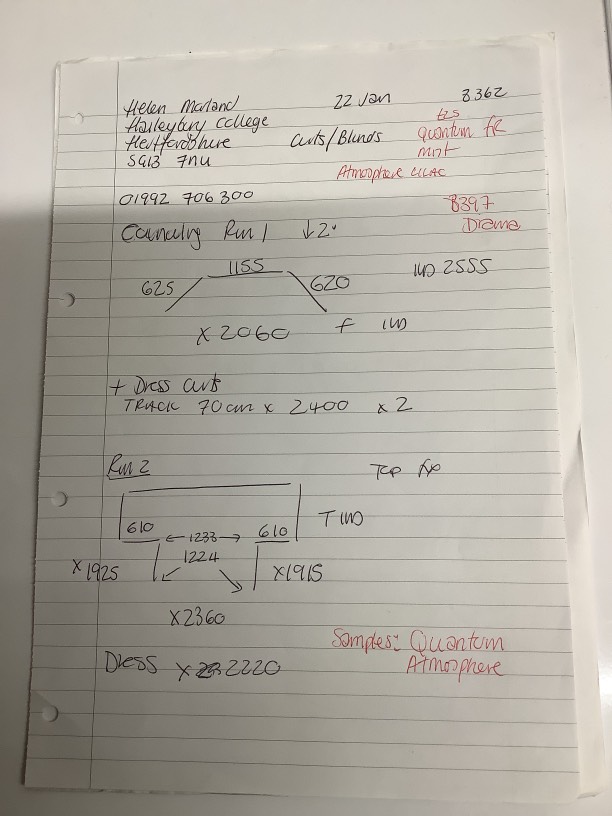 Helen Marland 22 Jan 8362
Haileybury College
Hertfordshire Curts/Blinds Quantum FR
SG13 7NU Mint
Atmosphere LILAC
01992 706 300 8397
Drama
Counselling Rm 1 ↓2
1155
625 620 IWD 2555
x 2060 F IWD
+ Dress Curts
TRACK 70cm x 2400 x 2
Rm 2 Top fix
610 ← 1233 → 610 T IWD
x 1925 1224 x 1915
x 2360
Samples: Quantum
Atmosphere
Dress x 2220